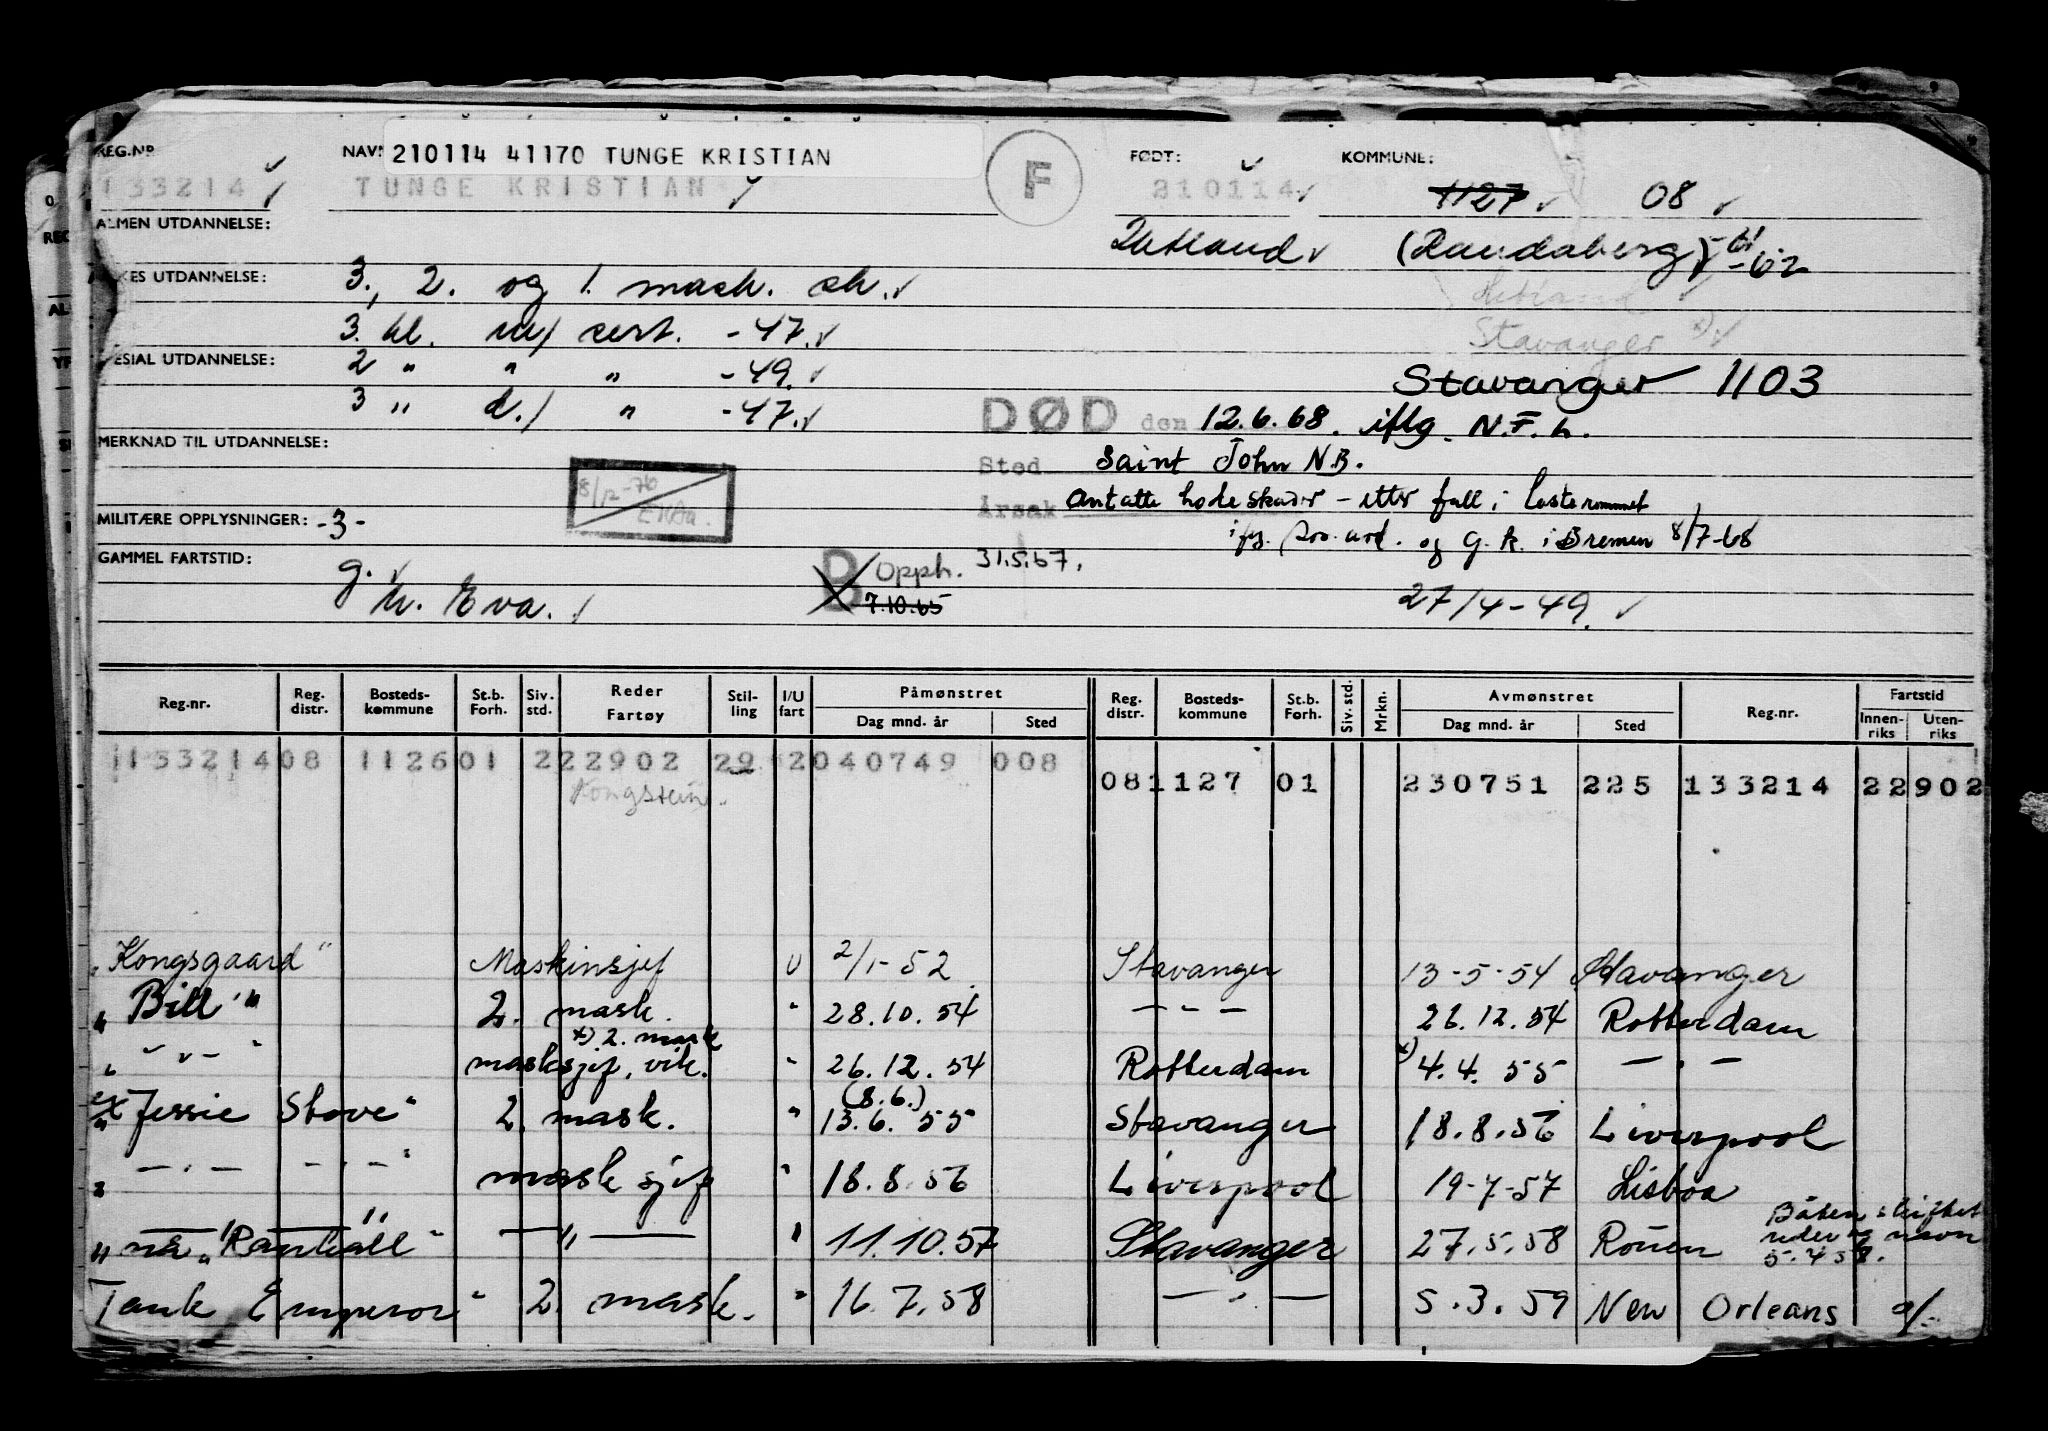 REG.NR NAVN 210114 41170 TUNGE KRISTIAN F FØDT: KOMMUNE:
133214 TUNGE KRISTIAN 210114 1127 08
ALMEN UTDANNELSE: (Randaberg)
3., 2. og 1. mask. sk.
3. kl. m/ cert. -47. Stavanger
SPESIAL UTDANNELSE: 2 " " " -49.
3 " d./ " -47. Stavanger 1103
DØD den 12.6.68. iflg. N.F.h.
MERKNAD TIL UTDANNELSE:
Sted Saint John N.B.
8/12-76
Årsak antatte hodeskader - etter fall i lasterommet
MILITÆRE OPPLYSNINGER: -3-
og G.K. i Bremen 8/7-68
GAMMEL FARTSTID: g. B Opph. 31.5.67.
h. Eva. 7.10.65 27/4-49.
Reg.nr. Reg. distr. Bosteds-kommune St.b. Forh. Siv. std. Reder Fartøy Stil-ling I/U fart Påmønstret Dag mnd. år Sted Reg. distr. Bosteds-kommune St.b. Forh. Siv. std. Mrkn. Avmønstret Dag mnd. år Sted Reg.nr. Fartstid Innen-riks Uten-riks
133214 08 1126 01 2 22902 29 2 040749 008
08 1127 01 230751 225 133214 22902
Kongstein.
"Kongsgaard" Maskinsjef U 2/1-52 Stavanger 13-5-54 Stavanger
" Bill " 2. mask. " 28.10.54 - " - 26.12.54 Rotterdam
x) 2. mask
" - " - " masksjef, vik. " 26.12.54 Rotterdam x) 4.4.55 - " -
(8.6.)
"Jessie Stove" 2. mask. " 13.6.55 Stavanger 18.8.56 Liverpool
" - " - - " - " mask sjef " 18.8.56 Liverpool 19-7-57 Lisboa
Båten skiftet
" nå "Ranhall" - " - " 11.10.57 Stavanger 27.5.58 Rouen reder og navn
5.4.58.
Tank Emperor" 2. mask. " 16.7.58 - " - 5.3.59 New Orleans